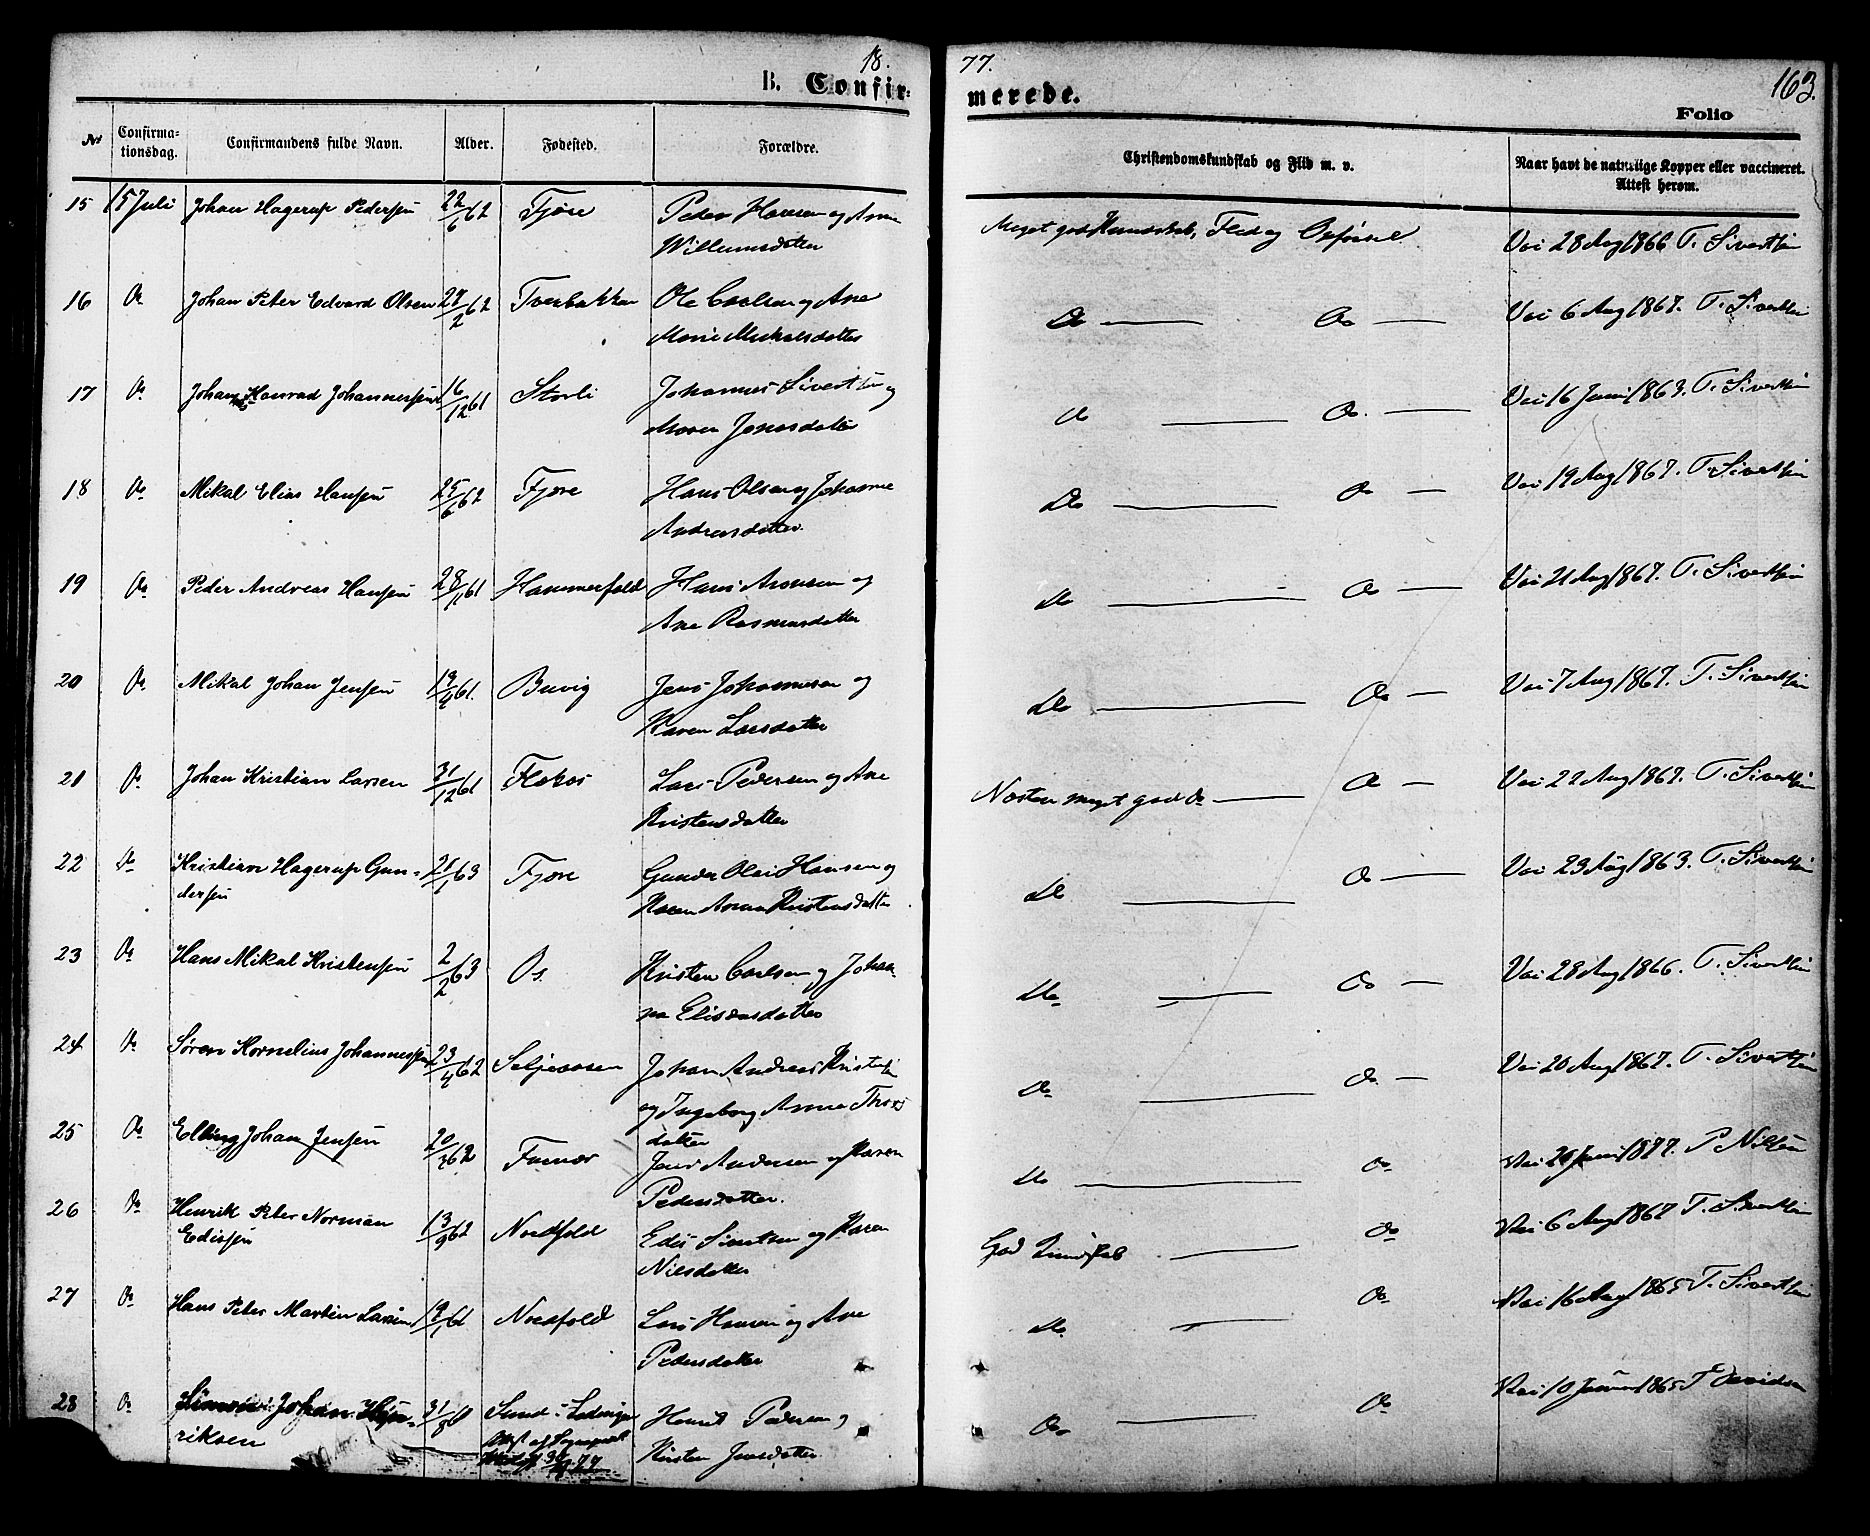 18. 77.
163.
B. Confir-
merede.
Folio
No Confirmationsdag. Confirmandens fulde Navn. Alder. Fødested. Forældre. Christendomskundskab og Flid m. v. Naar havt de naturlige Kopper eller vaccineret. Attest herom.
15 15 Juli Johan Hagerup Pedersen 22/6 62 Fjøre Peder Hansen og Ane Willumsdatter Meget god Kundskab, Flid og Opførsel Vac 28 Aug 1866 T. Sivertsen
16 Do Johan Peter Edvard Olsen 27/2 62 Tverbakken Ole Carlsen og Ane Marie Mickalsdatter Do Do Vac 6 Aug 1867. T. Sivertsen
17 Do Johan Konrad Johannessen 16/12 61 Storli Johannes Sivertsen og Maren Jonasdatter do Do Vac 16 Juni 1863. T. Sivertsen
18 Do Mikal Elias Hansen 25/6 62 Fjøre Hans Olsen og Johanne Andreasdatter Do Do Vac 19 Aug 1867. T. Sivertsen
19 Do Peder Andreas Hansen 28/11 61 Hammerfeld Hans Aronsen og Ane Rasmusdatter Do Do Vac 21 Aug 1867. T. Sivertsen
20 Do Mikal Johan Jensen 19/4 61. Buvig Jens Johannesen og Karen Larsdatter Do Do Vac 7 Aug 1867. T. Sivertsen
21 Do Johan Kristian Larsen 31/12 61 Flekos Lars Pedersen og Ane Kristensdatter Næsten meget god do Do Vac 22 Aug 1867. T. Sivertsen
22 Do Kristian Hagerup Gundersen 21/1 63 Fjøre Gunder Olai Hansen og Karen Anna Kristensdatter Do Do Vac 23 Aug 1863. T. Sivertsen
23 Do Hans Mikal Kristensen 2/2 63 Os Kristen Carlsen og Johanna Elisæusdatter Do Do Vac 28 Aug 1866. T. Sivertsen
24 Do Søren Kornelius Johannessen 23/4 62 Seljeaasen Johan Andreas Kristensen og Ingeborg Anna Thorsdatter Do Do Vac 20 Aug 1867. T. Sivertsen
25 Do Elling Johan Jensen 20/3 62 Jens Andersen og Karen Pedersdatter. Do Do Vac 20 Juni 1877. P. Nilsen
26 Do Henrik Peter Norman Edissen 13/9 62 Nordfold Edis Sivertsen og Karen Nilsdatter God Kundskab Do Vac 6 Aug 1867 T. Sivertsen
27 Do Hans Peter Martin Larsen 19/1 61 Nordfold Lars Hansen og Ane Pedersdatter Do Do Vac 16 Aug 1865 T. Sivertsen
28 Do Johan Henriksen 31/8 Sund i Henrik Pedersen og Kirsten Jensdatter Do Do Vac 10 Juni 1865 T. Davidsen